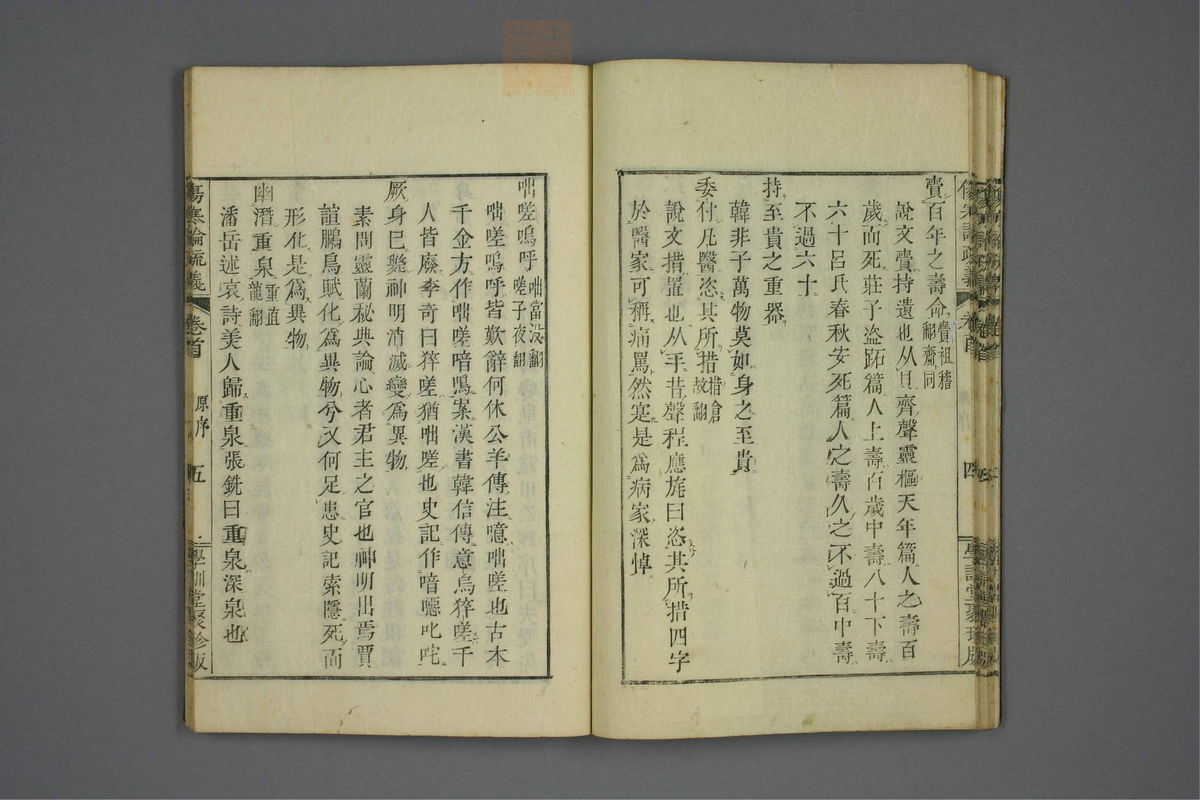 賷百年之壽命賷祖稽翻齋同
說文賷持遺也从貝齊聲靈樞天年篇人之壽百
歲而死莊子盜跖篇人上壽百歲中壽八十下壽
六十呂氏春秋安死篇人之壽久之不過百中壽
不過六十
持至貴之重器
韓非子萬物莫如身之至貴
委付凡醫恣其所措措倉故翻
說文措置也从手昔聲程應旄曰恣其所措四字
於醫家可稱痛罵然寔是爲病家深悼
四
學訓堂聚珍版
咄嗟嗚呼咄當没翻嗟子夜翻
咄嗟嗚呼皆歎辭何休公羊傳注噫咄嗟也古本
千金方作咄嗟喑嗚案漢書韓信傳意烏猝嗟千
人皆廢李奇曰猝嗟猶咄嗟也史記作喑噁叱咤
厥身已斃神明消滅變爲異物
素問靈蘭秘典論心者君主之官也神明出焉賈
誼鵩鳥賦化爲異物兮又何足患史記索隱死而
形化是爲異物
幽潛重泉重直龍翻
潘岳述哀詩美人歸重泉張銑曰重泉深泉也
傷寒論疏義
卷首
原序
五
學訓堂聚珍版